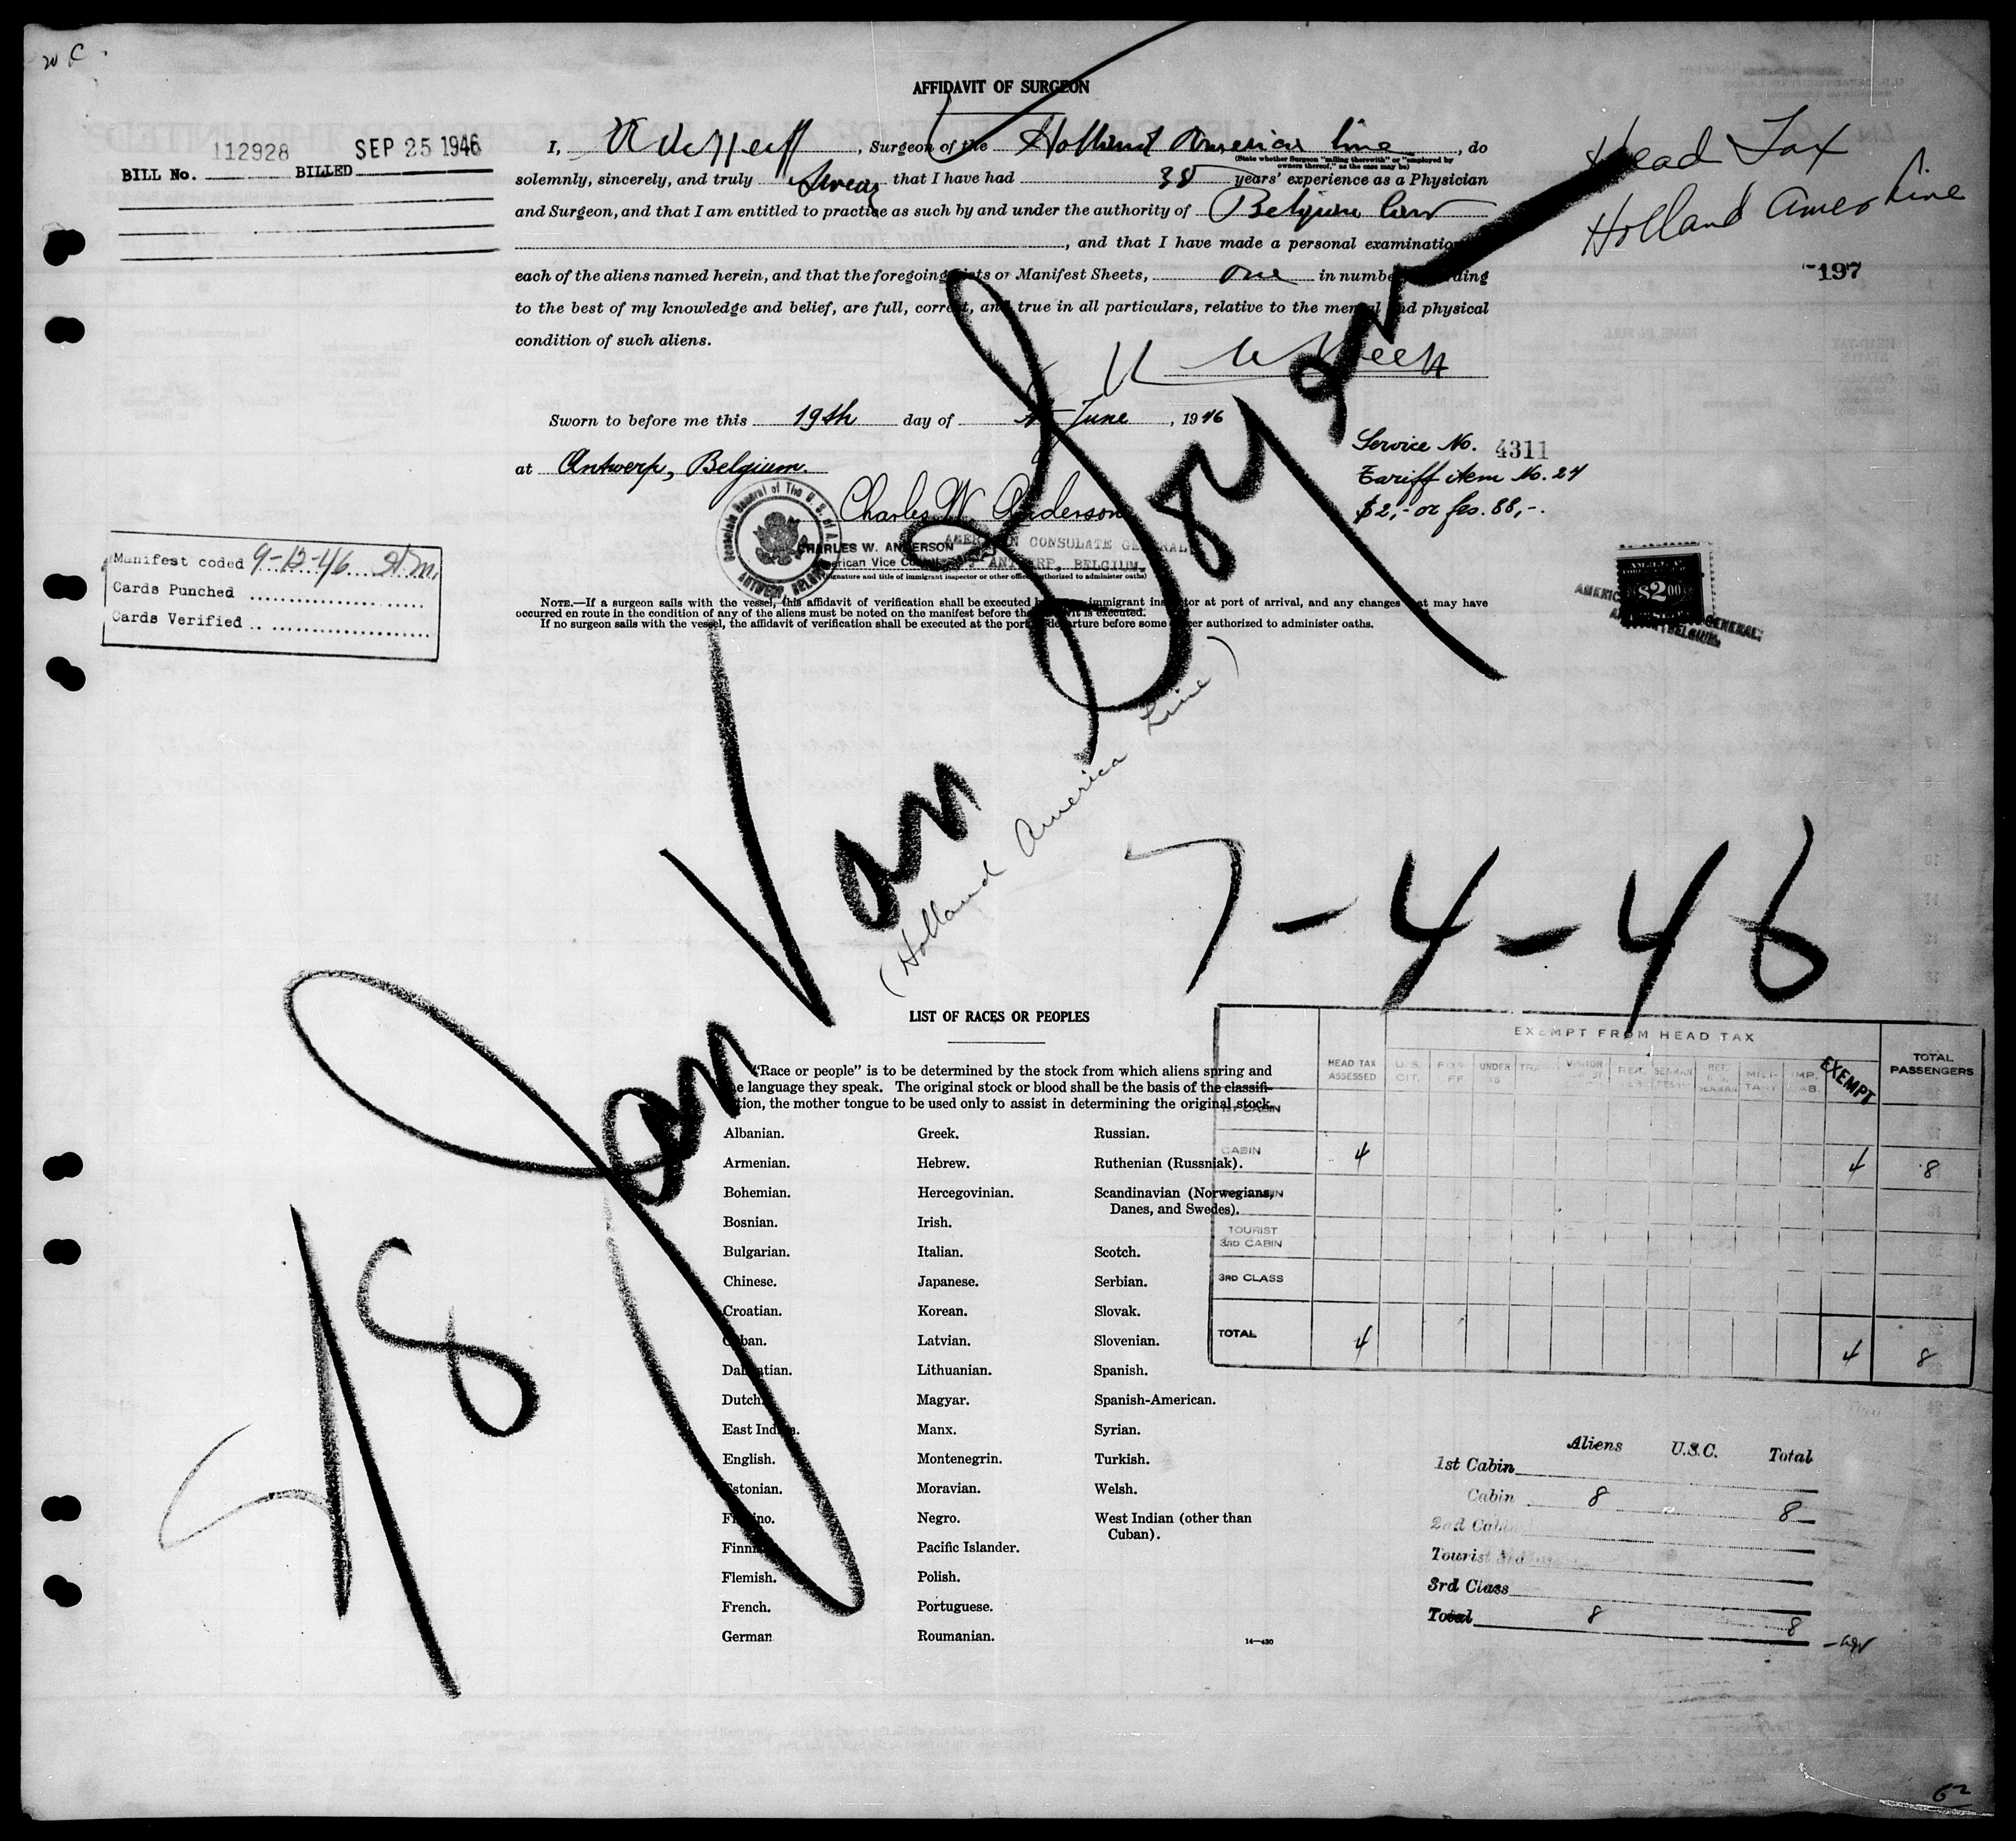 AFFIDAVIT OF SURGEON
BILL No. 112928 BILLED SEP 25 1946
I, , Surgeon of the Holland America Line, do
(State whether Surgeon "sailing therewith" or "employed by
owners thereof," as the case may be)
solemnly, sincerely, and truly swear that I have had 38 years' experience as a Physician
and Surgeon, and that I am entitled to practice as such by and under the authority of Belgium law
, and that I have made a personal examination
each of the aliens named herein, and that the foregoing Lists or Manifest Sheets, one in number
to the best of my knowledge and belief, are full, correct, and true in all particulars, relative to the mental and physical
condition of such aliens.
Head Tax
Holland Amer Line
197
Sworn to before me this 19th day of June, 1946
at Antwerp, Belgium.
Charles W. Anderson
CHARLES W. ANDERSON
American Vice Consul
AMERICAN CONSULATE GENERAL
ANTWERP, BELGIUM.
(Signature and title of immigrant inspector or other officer authorized to administer oaths)
Service No. 4311
Tariff item No. 24
$2,- or frs. 88,-.
$2.00
NOTE.—If a surgeon sails with the vessel, this affidavit of verification shall be executed immigrant inspector at port of arrival, and any changes that may have
occurred en route in the condition of any of the aliens must be noted on the manifest before the affidavit is executed.
If no surgeon sails with the vessel, the affidavit of verification shall be executed at the port of departure before some officer authorized to administer oaths.
Manifest coded 9-12-46
Cards Punched
Cards Verified
SS Jan Van
(Holland America Line)
7-4-46
LIST OF RACES OR PEOPLES
"Race or people" is to be determined by the stock from which aliens spring and
the language they speak. The original stock or blood shall be the basis of the classifi-
cation, the mother tongue to be used only to assist in determining the original stock.
Albanian. Greek. Russian.
Armenian. Hebrew. Ruthenian (Russniak).
Bohemian. Hercegovinian. Scandinavian (Norwegians,
Danes, and Swedes).
Bosnian. Irish.
Bulgarian. Italian. Scotch.
Chinese. Japanese. Serbian.
Croatian. Korean. Slovak.
Cuban. Latvian. Slovenian.
Dalmatian. Lithuanian. Spanish.
Dutch. Magyar. Spanish-American.
East Indian. Manx. Syrian.
English. Montenegrin. Turkish.
Estonian. Moravian. Welsh.
Filipino. Negro. West Indian (other than
Cuban).
Finnish. Pacific Islander.
Flemish. Polish.
French. Portuguese.
German Roumanian.
14—430
EXEMPT FROM HEAD TAX
HEAD TAX ASSESSED U.S. CIT. UNDER 16 MILITARY EXEMPT TOTAL PASSENGERS
1ST CABIN
CABIN 4 4 8
TOURIST
3RD CABIN
3RD CLASS
TOTAL 4 4 8
Aliens U.S.C. Total
1st Cabin
Cabin 8 8
2nd Cabin
Tourist
3rd Class
Total 8 8
62